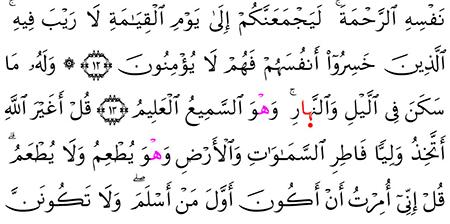 نَفْسِهِ الرَّحْمَةَ ۚ لَيَجْمَعَنَّكُمْ إِلَىٰ يَوْمِ الْقِيَامَةِ لَا رَيْبَ فِيهِ ۚ
الَّذِينَ خَسِرُوٓا۟ أَنفُسَهُمْ فَهُمْ لَا يُؤْمِنُونَ ﴿١٢﴾ ۞ وَلَهُۥ مَا
سَكَنَ فِى الَّيْلِ وَالنَّهِارِ ۚ وَهْوَ السَّمِيعُ الْعَلِيمُ ﴿١٣﴾ قُلْ أَغَيْرَ اللَّهِ
أَتَّخِذُ وَلِيًّا فَاطِرِ السَّمَٰوَٰتِ وَالْأَرْضِ وَهْوَ يُطْعِمُ وَلَا يُطْعَمُ ۗ
قُلْ إِنِّىٓ أُمِرْتُ أَنْ أَكُونَ أَوَّلَ مَنْ أَسْلَمَ ۖ وَلَا تَكُونَنَّ